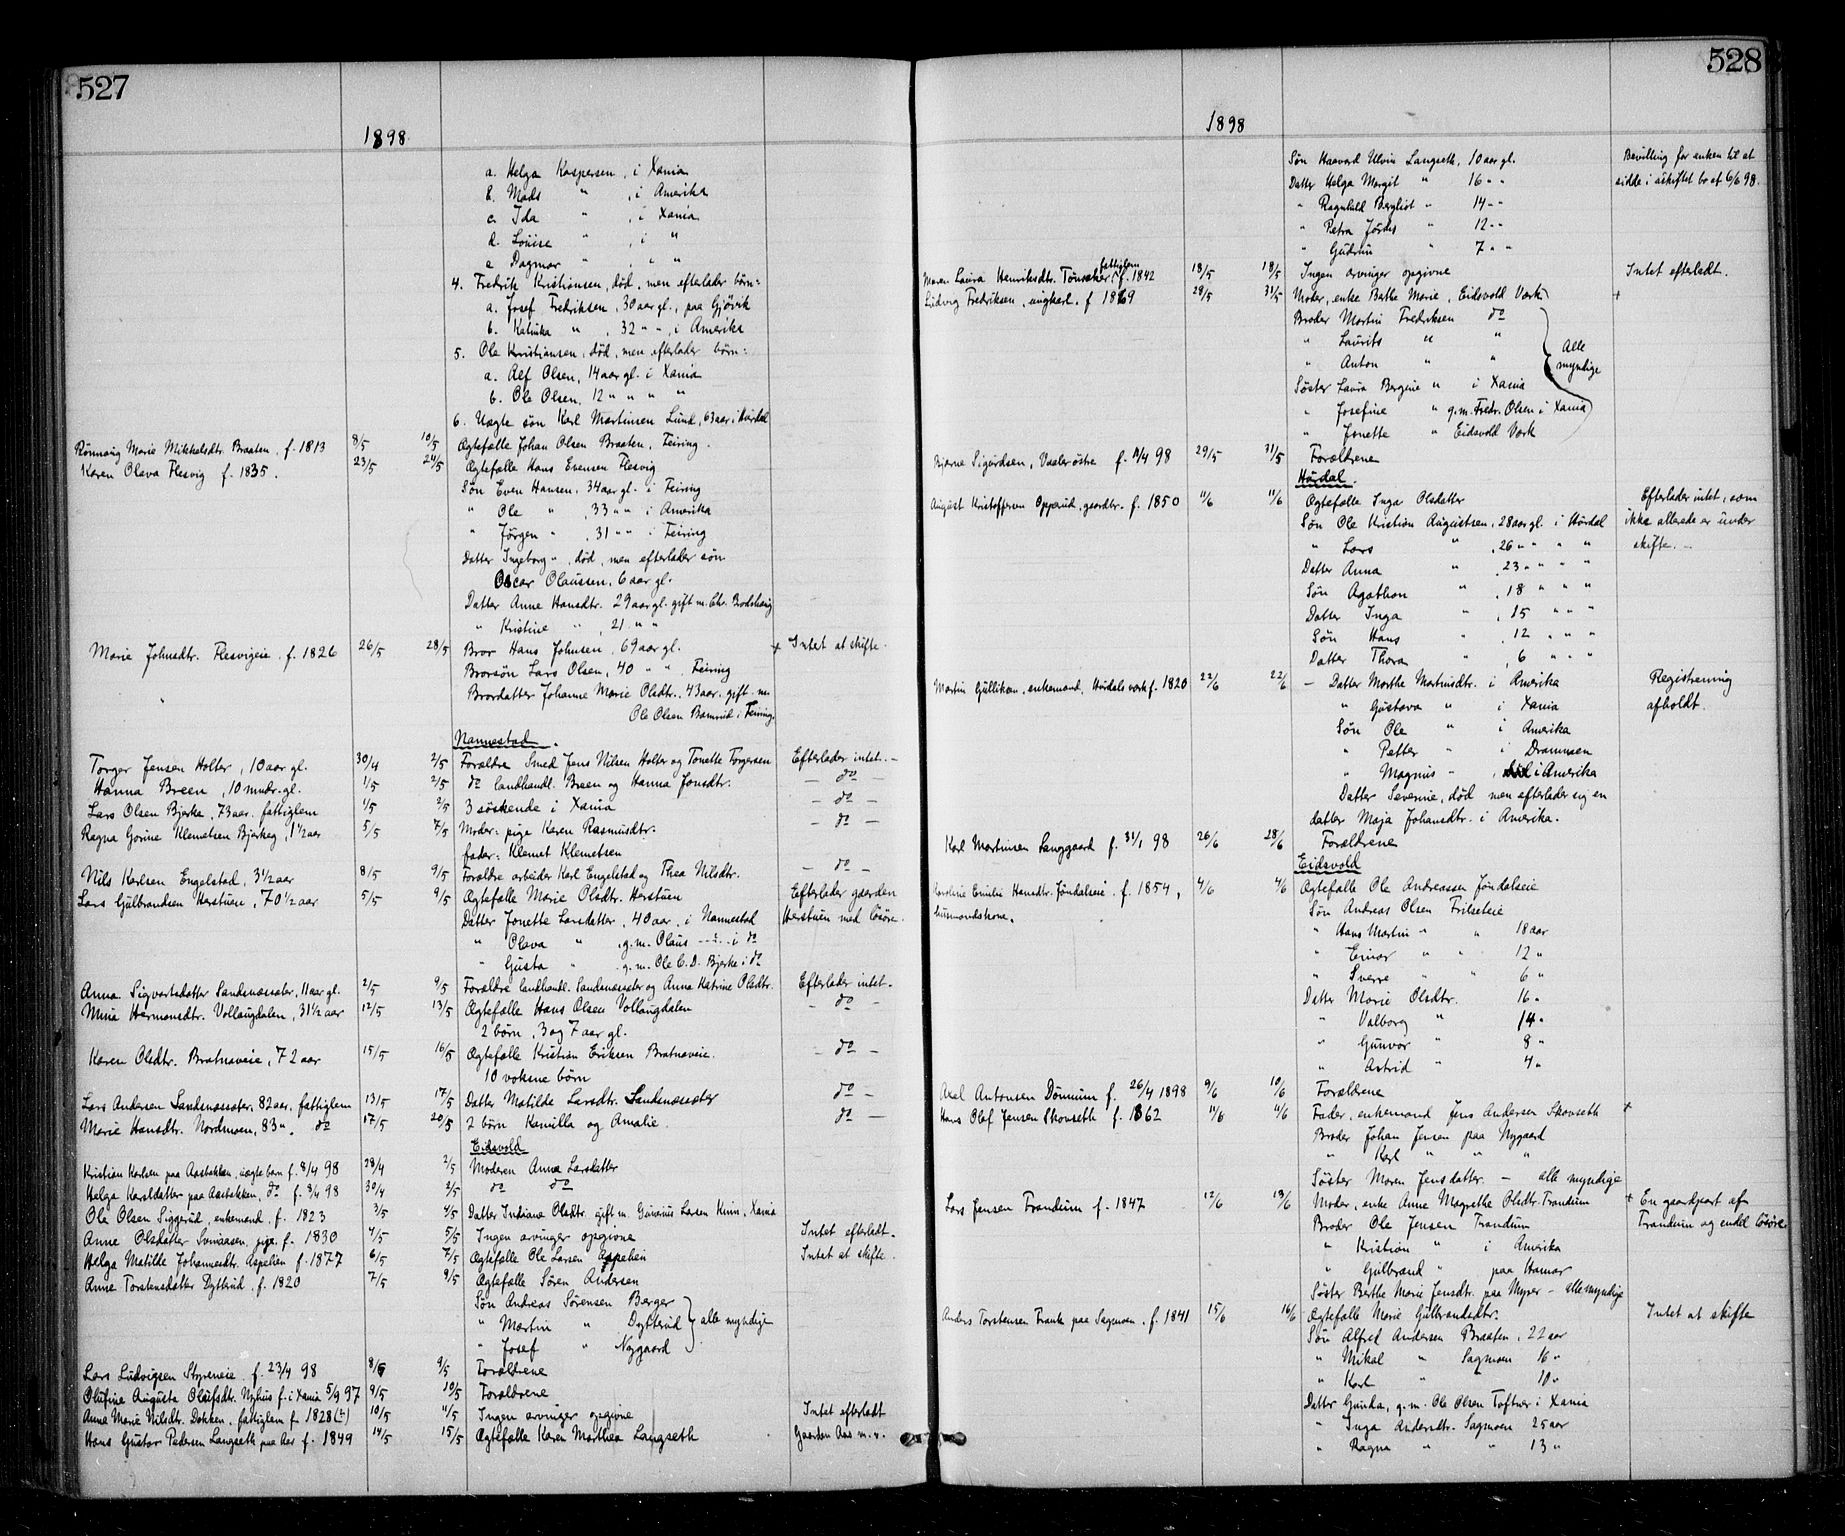 527
1898
a. Helga Kaspersen, i Xania
b. Mads " , i Amerika
c. Ida " , i Xania
d. Louise " , i "
e Dagmar " , " "
4. Fredrik Kristiansen, død, men efterlader børn:
a. Josef Fredriksen, 30 aar gl., paa Gjøvik
b. Katinka " , 32 " " , i Amerika
5. Ole Kristiansen, død, men efterlader børn:
a. Alf Olsen, 14 aar gl. i Xania
b. Ole Olsen, 12 " " " "
6. Uægte søn Karl Martinsen Lund, 63 aar, i Hurdal
Rønnaug Marie Mikkelsdtr. Braaten, f. 1813 8/5 10/5 Ægtefælle Johan Olsen Braaten, Feiring.
Karen Olava Flesvig f. 1835. 23/5 24/5 Ægtefælle Hans Evensen Flesvig
Søn Even Hansen, 34 aar gl. i Feiring
" Ole " , 33 " " i Amerika
" Jørgen " , 31 " " i Feiring
Datter Ingeborg " , død, men efterlader søn
Oscar Olaussen, 6 aar gl.
Datter Anne Hansdtr. 29 aar gl. gift m. Chr. Brodshaug
" Kristine " , 21 " "
Marie Johnsdtr. Flesvigeie, f. 1826 26/5 28/5 Bror Hans Johnsen, 69 aar gl. + Intet at skifte.
Brorsøn Lars Olsen, 40 " " Feiring
Brordatter Johanne Marie Olsdtr., 43 aar, gift m.
Ole Olsen Bamrud i Feiring.
Nannestad.
Torger Jensen Holter, 10 aar gl. 30/4 2/5 Forældre Smed Jens Nilsen Holter og Tonette Torgersen Efterlader intet. -
Hanna Breen, 10 mndr. gl. 1/5 2/5 do landhandl. Breen og Hanna Jonsdtr. — do —
Lars Olsen Bjerke, 73 aar. fattiglem 1/5 2/5 3 søskende i Xania — do —
Ragna Gorine Klemetsen Bjerkeg, 1 1/2 aar 5/5 7/5 Moder: pige Karen Rasmusdtr. — do —
fader: Klemet Klemetsen
Nils Karlsen Engelstad, 3 1/2 aar 8/5 9/5 Forældre arbeider Karl Engelstad og Thea Nilsdtr. — do —
Lars Gulbrandsen Herstuen, 70 1/2 aar 5/5 9/5 Ægtefælle Marie Olsdtr. Herstuen Efterlader gaarden
Datter Jonette Larsdatter, 40 aar, i Nannestad Herstuen med løsøre.
" Olava " , g.m. Olaus - - " - - i do
" Gusta " , g.m. Ole C. D. Bjerke i do
Anna Sigvartsdatter Sandsnæssæter, 11 aar gl. 2/5 9/5 Forældre landhandl. Sandsnæssæter og Anna Katrine Olsdtr. Efterlader intet.
Mina Hermansdtr. Vollaugdalen, 31 1/2 aar 12/5 13/5 Ægtefælle Hans Olsen Vollaugdalen — do —
2 børn, 3 og 7 aar gl.
Karen Olsdtr. Bratnaveie, 72 aar 15/5 16/5 Ægtefælle Kristian Eriksen Bratnaveie. — do —
10 voksne børn
Lars Andersen Sandsnæssæter, 82 aar, fattiglem 13/5 17/5 Datter Matilde Larsdtr. Sandsnæssæter do —
Marie Hansdtr. Nordmoen, 83 ", do 17/5 20/5 2 børn Kamilla og Amalie. do —
Eidsvold
Kristian Karlsen paa Aastebken, uægte barn f. 8/4 98 28/4 2/5 Moderen Anne Larsdatter
Helga Karlsdatter paa Aastebken, do f. 8/4 98 30/4 2/5 do do
Ole Olsen Siggerud, enkemand, f. 1823 3/5 4/5 Datter Indiane Olsdtr. gift m. Gunerius Larsen Kinn, Xania
Anne Olsdatter Svenaasen, pige f. 1830 4/5 5/5 Ingen arvinger opgivne Intet efterladt.
Helga Matilde Johannesdtr. Aspelien f. 1877 6/5 7/5 Ægtefælle Ole Larsen Aspelien Intet at skifte.
Anne Torstensdatter Dytterud, f. 1820 7/5 9/5 Ægtefælle Søren Andersen
Søn Andreas Sørensen Berger
" Martin " Dytterud } alle myndige
" Josef " Nygaard
Lars Ludvigsen Styreneie f. 23/4 98 8/5 9/5 Forældrene
Olufine Augusta Olufsdtr. Nyhus f. i Xania 5/9 97 9/5 10/5 Forældrene
Anne Marie Nilsdtr. Dokken, fattiglem f. 1828 10/5 11/5 Ingen arvinger opgivne Intet efterladt
Hans Gustav Pedersen Langseth paa Aas f. 1849 14/5 15/5 Ægtefælle Karen Marthea Langseth Gaarden Aas m. v.
528
1898
Søn Haavard Ulvin Langseth, 10 aar gl. Bevilling for enken til at
Datter Helga Margit " 16 " " sidde i uskiftet bo af 6/6 98.
" Ragnhild Bergliot " 14 " "
" Petra Jørdis " 12 " "
" Gudrun " 7 " "
Maren Laura Henriksdtr. Tønsaker, fattiglem f. 1842 18/5 18/5 Ingen arvinger opgivne Intet efterladt.
Ludvig Fredriksen, ungkarl, f 1869 28/5 31/5 Moder, enke Bathe Marie, Eidsvold Værk +
Broder Martin Fredriksen do
" Laurits " "
" Anton " " } Alle myndige
Søster Laura Bergine " i Xania
" Josefine " g.m. Fredr. Olsen i Xania
" Jonette " Eidsvold Værk
Bjarne Sigurdsen, Vaalerøstre f. 11/4 98 29/5 31/5 Forældrene
Hurdal.
August Kristoffersen Opperud, gaardbr. f. 1850 11/6 11/6 Ægtefælle Inga Olsdatter Efterlader intet, som
Søn Ole Kristian Augustsen, 28 aar gl. i Hurdal ikke allerede er under
" Lars " , 26 " " " " skifte. -
Datter Anna " , 23 " " " "
Søn Agathon " , 18 " " " "
Datter Inga " , 15 " " "
Søn Hans " , 12 " " "
Datter Thora " , 6 " " "
Martin Gulliksen, enkemand, Hurdals værk f. 1820 22/6 22/6 — Datter Marthe Martinsdtr. i Amerika Registrering
" Gustava " i Xania afholdt.
Søn Ole " i Amerika
" Petter " i Drammen
" Magnus " , i Amerika
Datter Severine, død men efterlader sig en
datter Maja Johansdtr. i Amerika.
Karl Martinsen Langgaard f. 31/1 98 26/6 28/6 Forældrene
Eidsvold
Karoline Emilie Hansdtr. Jøndalseie, f. 1854, 4/6 4/6 Ægtefælle Ole Andreassen Jøndalseie
husmandskone. Søn Andreas Olsen Frilseteie
" Hans Martin " " 18 aar
" Einar " " 12 "
" Sverre " " 6 "
Datter Marie Olsdtr. 16 "
" Valborg " 14 "
" Gunvor " 8 "
" Astrid " 4 "
Axel Antonsen Dønnum f. 26/4 1898 9/6 10/6 Forældrene
Hans Olaf Jensen Skovseth f. 1862 11/6 11/6 Fader, enkemand Jens Andersen Skovseth +
Broder Johan Jensen paa Nygaard
" Karl " " "
Søster Maren Jensdatter. — alle myndige
Lars Jensen Trandum f. 1847 12/6 13/6 Moder, enke Anne Magrethe Olsdtr. Trandum + En gaardpart af
Broder Ole Jensen Trandum Trandum og endel løsøre
" Kristian " i Amerika
" Gulbrand " paa Hamar
Søster Berthe Marie Jensdtr. paa Myrer — alle myndige
Anders Torstensen Frank paa Sagmoen, f. 1841 15/6 16/6 Ægtefælle Marie Gulbrandsdtr. Intet at skifte
Søn Alfred Andersen Braaten, 22 aar
" Mikal " Sagmoen 16 "
" Karl " " 10 "
Datter Gunka, g.m. Ole Olsen Toftner i Xania
" Inga Andersdtr. Sagmoen 25 aar
" Ragna " " 13 "